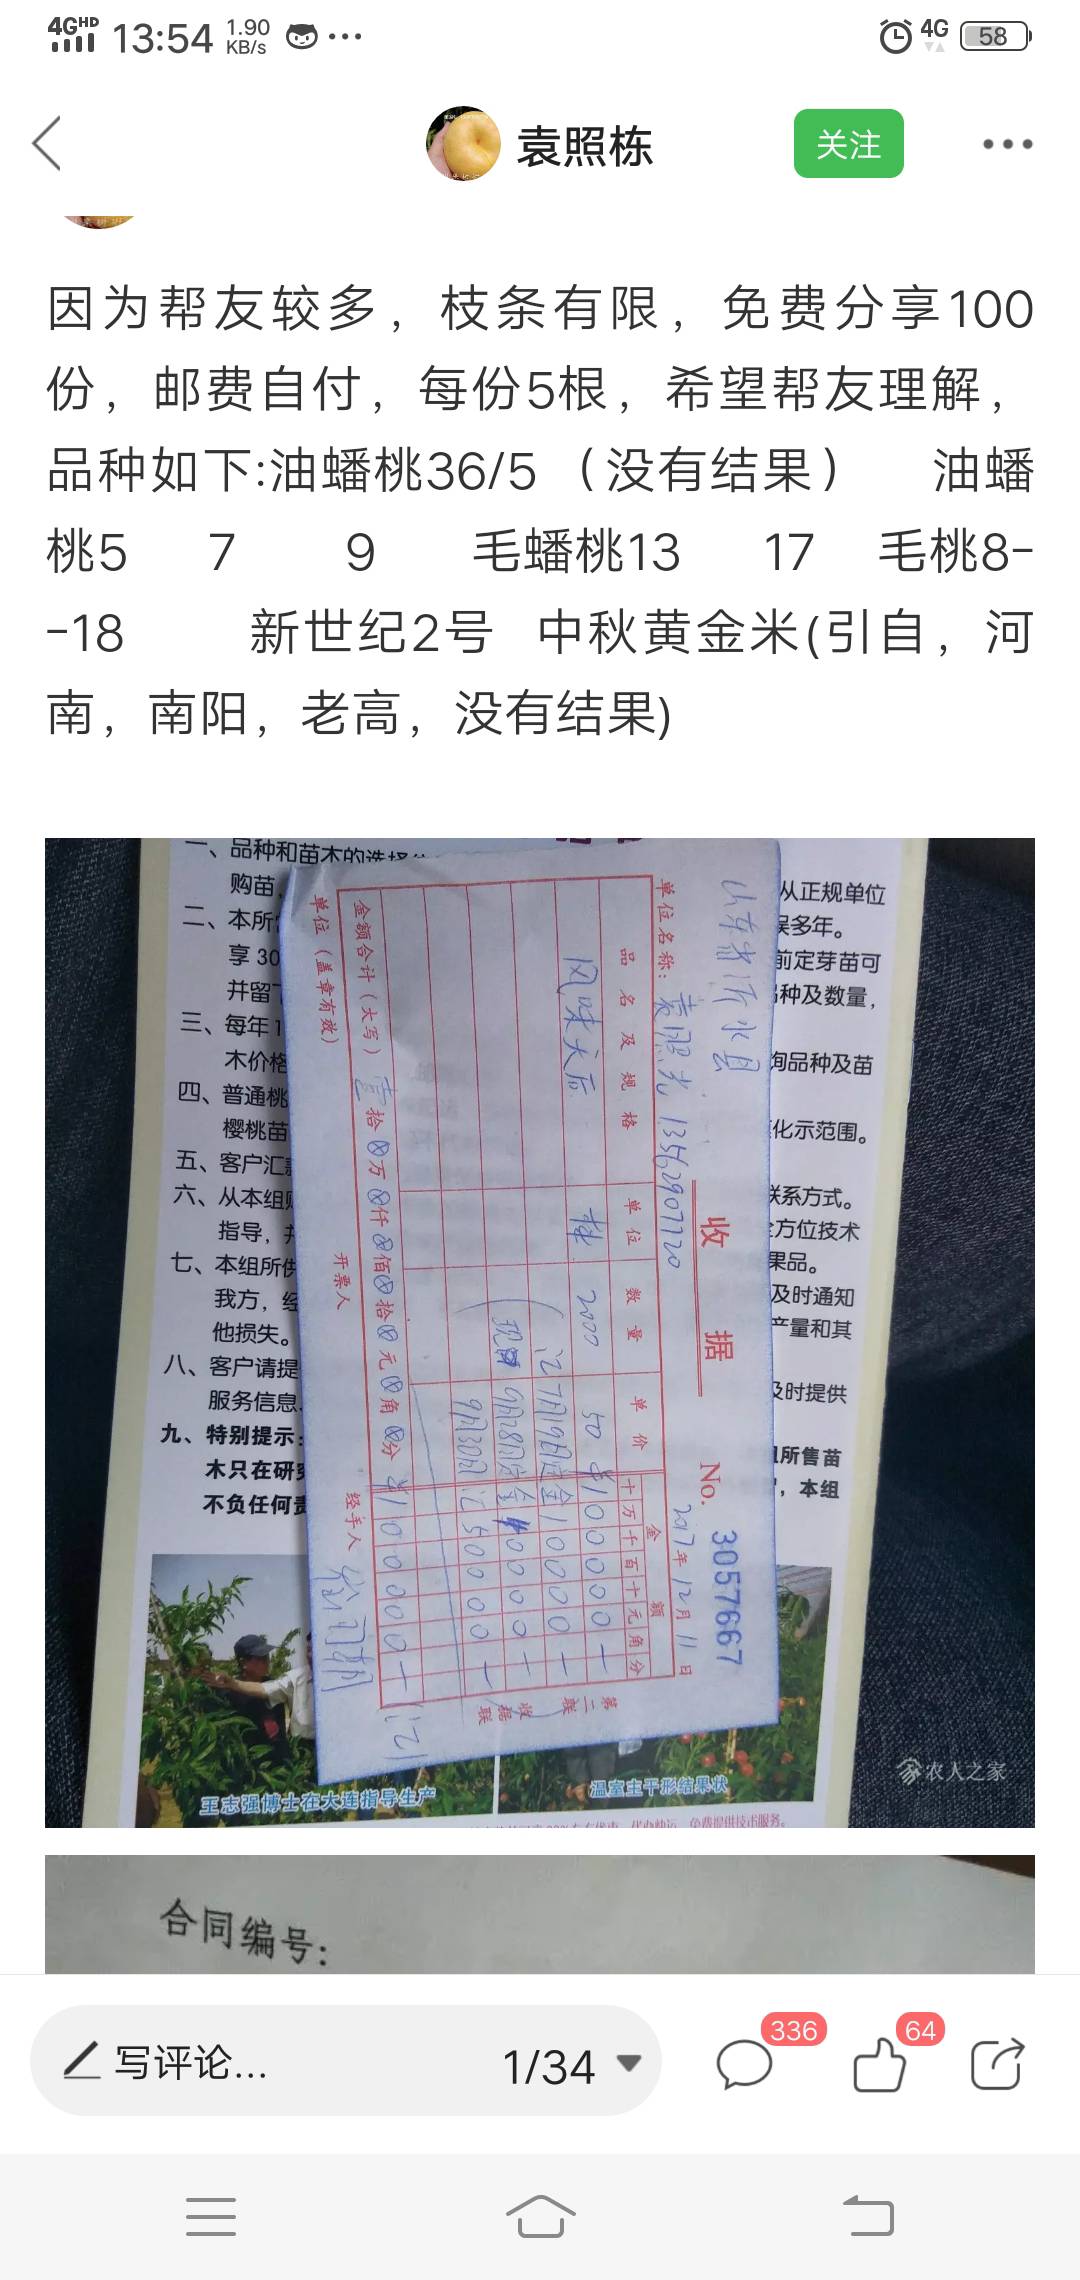 4GHD 13:54 1.90 KB/s ··· 4G 58
袁照栋 关注
因为帮友较多，枝条有限，免费分享100
份，邮费自付，每份5根，希望帮友理解，
品种如下:油蟠桃36/5（没有结果） 油蟠
桃5 7 9 毛蟠桃13 17 毛桃8-
-18 新世纪2号 中秋黄金米(引自，河
南，南阳，老高，没有结果)
一、品种和苗木的选择
购苗，
从正规单位
二、本所
多年。
享30
前定芽苗可
并留
种及数量，
三、每年1
木价格
询品种及苗
四、普通桃
樱桃苗
化示范围。
五、客户汇
六、从本组
联系方式。
指导，
全方位技术
果品。
七、本组所供
及时通知
我方，经
产量和其
他损失。
八、客户请提
及时提供
服务信息
九、特别提示：
所售苗
木只在研究
，本组
不负任何责
收 据
No. 3057667
山东省沂水县
2017年12月11日
单位名称：袁照光 13562907720
品名及规格 单位 数量 单价 金额
十万千百十元角分
风味天后 株 2000 50 ¥100000-
汇7月19日定金10000-
现 9月28日定金40000-
9月30日汇50000-
金额合计（大写）壹拾⊗万⊗仟⊗佰⊗拾⊗元⊗角⊗分 ¥100000-
单位（盖章有效） 开票人 经手人
第二联 收据联
王志强博士在大连指导生产
温室主干形结果状
免费提供技术服务。
农人之家
合同编号：
写评论... 1/34 336 64